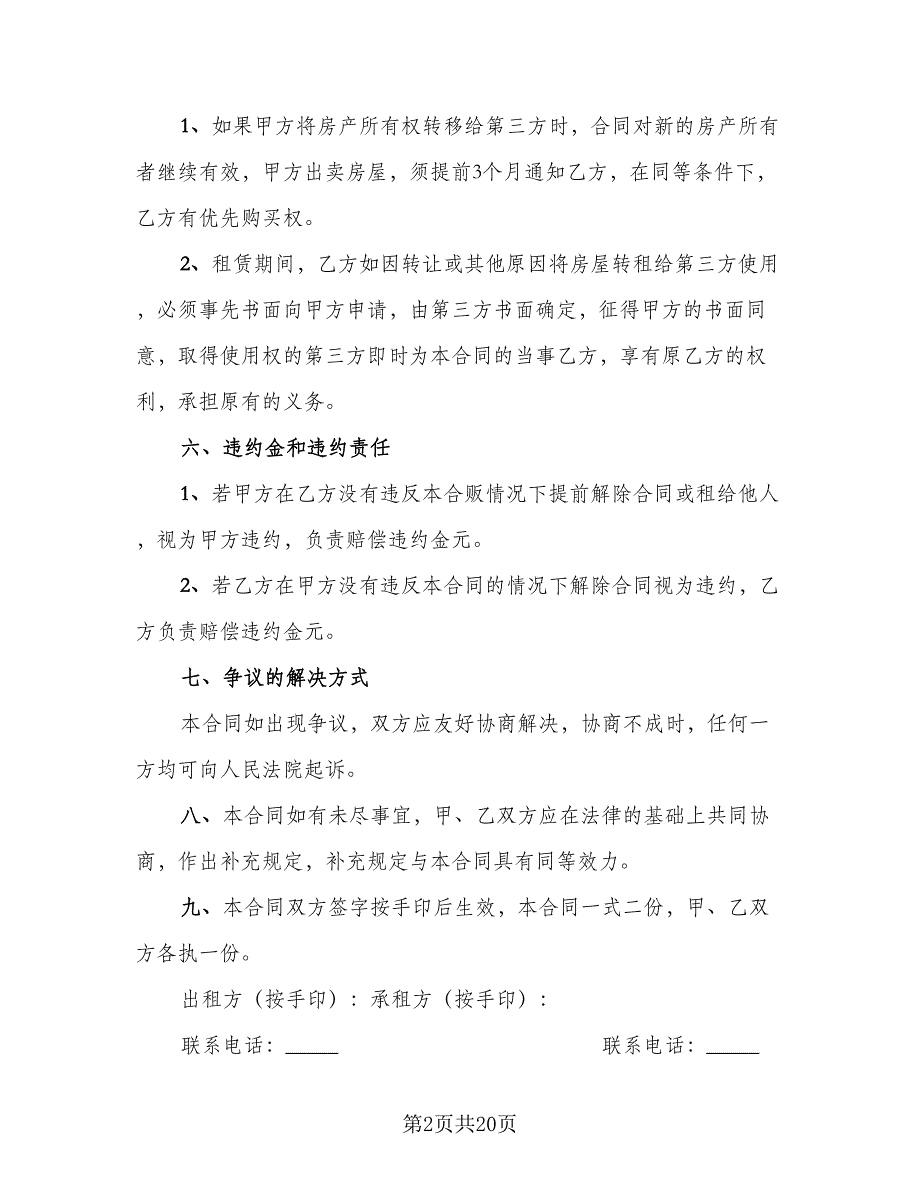 1、如果甲方将房产所有权转移给第三方时，合同对新的房产所有
者继续有效，甲方出卖房屋，须提前3个月通知乙方，在同等条件下，
乙方有优先购买权。
2、租赁期间，乙方如因转让或其他原因将房屋转租给第三方使用
，必须事先书面向甲方申请，由第三方书面确定，征得甲方的书面同
意，取得使用权的第三方即时为本合同的当事乙方，享有原乙方的权
利，承担原有的义务。
六、违约金和违约责任
1、若甲方在乙方没有违反本合贩情况下提前解除合同或租给他人
，视为甲方违约，负责赔偿违约金元。
2、若乙方在甲方没有违反本合同的情况下解除合同视为违约，乙
方负责赔偿违约金元。
七、争议的解决方式
本合同如出现争议，双方应友好协商解决，协商不成时，任何一
方均可向人民法院起诉。
八、本合同如有未尽事宜，甲、乙双方应在法律的基础上共同协
商，作出补充规定，补充规定与本合同具有同等效力。
九、本合同双方签字按手印后生效，本合同一式二份，甲、乙双
方各执一份。
出租方（按手印）：承租方（按手印）：
联系电话：_____ 联系电话：_____
第2页共20页